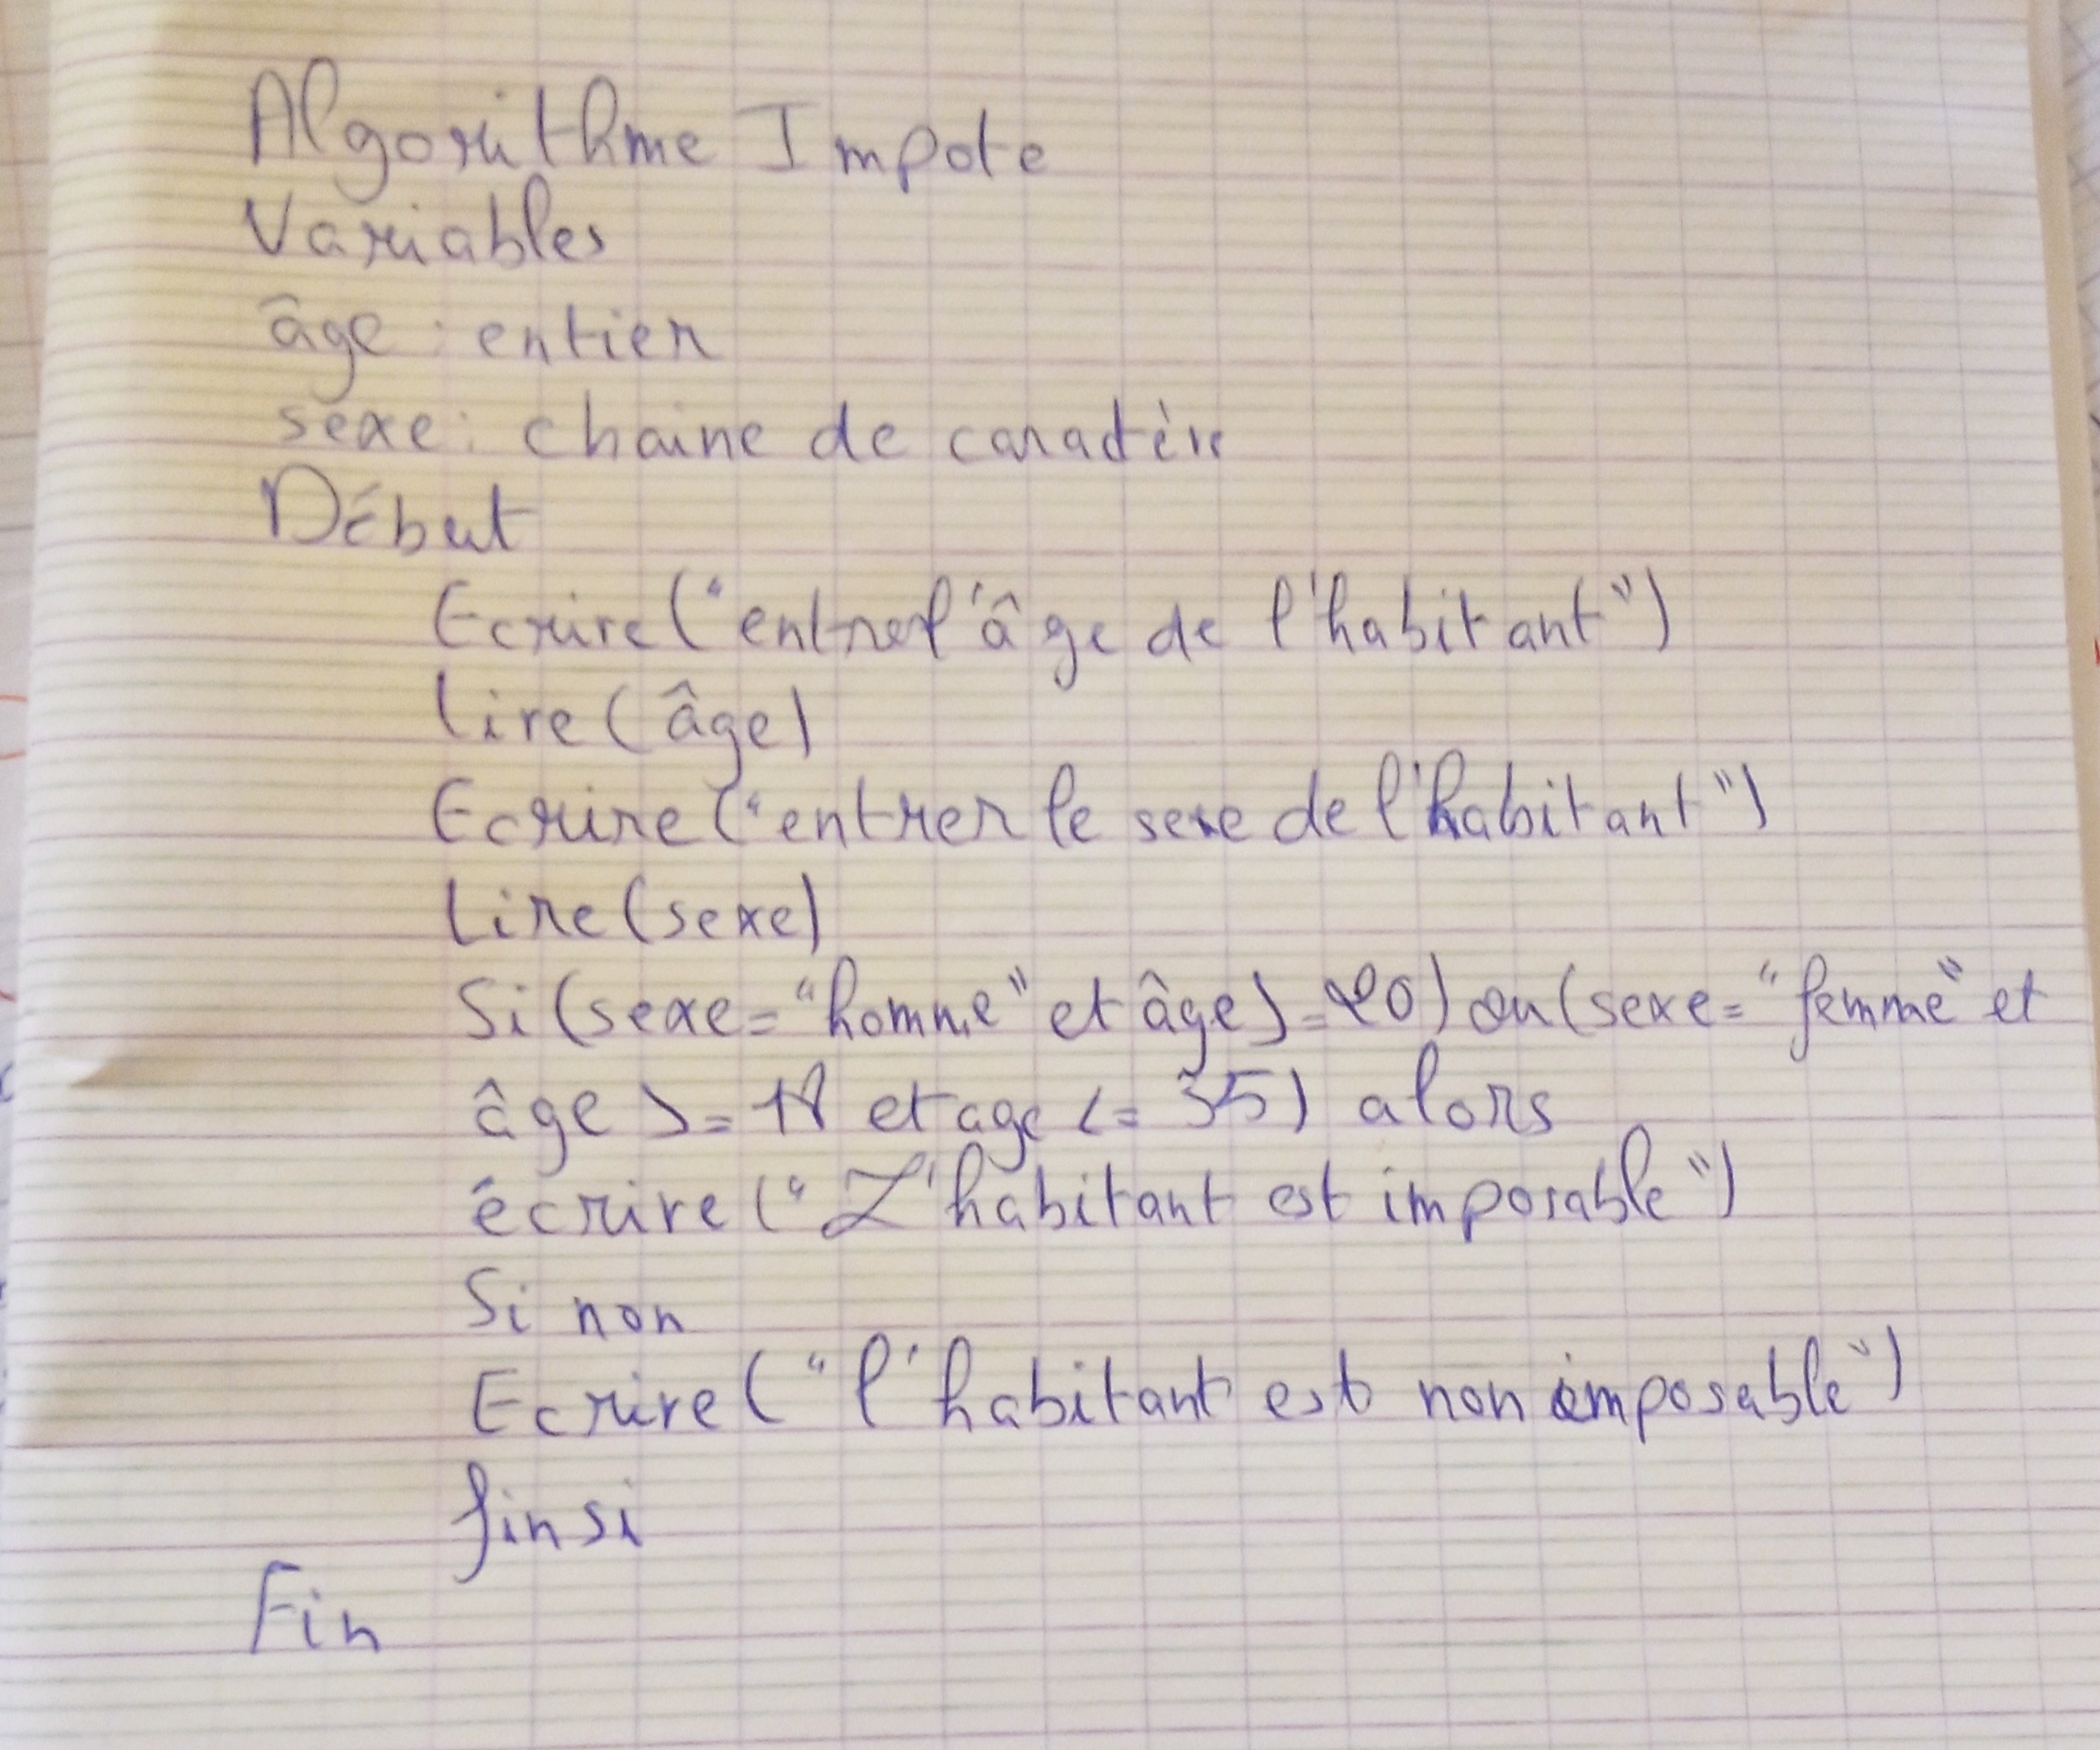 Algorithme Impote
Variables
âge : entier
sexe : chaine de caractère
Début
Ecrire ("entrer l'âge de l'habitant")
Lire (âge)
Ecrire ("entrer le sexe de l'habitant")
Lire (sexe)
Si (sexe = "homme" et âge >= 20) ou (sexe = "femme" et
âge >= 18 et age <= 35) alors
écrire ("L'habitant est imposable")
Si non
Ecrire ("l'habitant est non imposable")
finsi
Fin